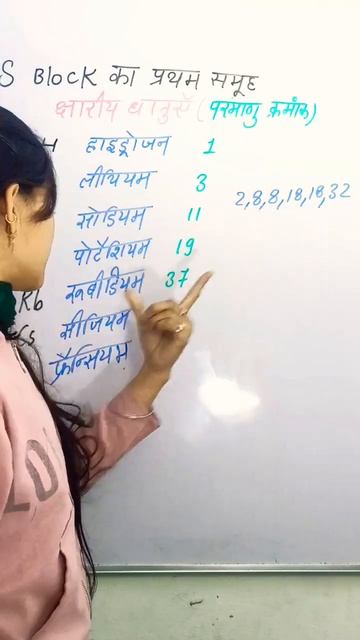 S Block का प्रथम समूह
क्षारीय धातुएँ (परमाणु क्रमांक)
H हाइड्रोजन 1
लीथियम 3
2,8,8,18,18,32
सोडियम 11
पोटैशियम 19
Rb रूबीडियम 37
Cs सीजियम
फ्रैन्सियम